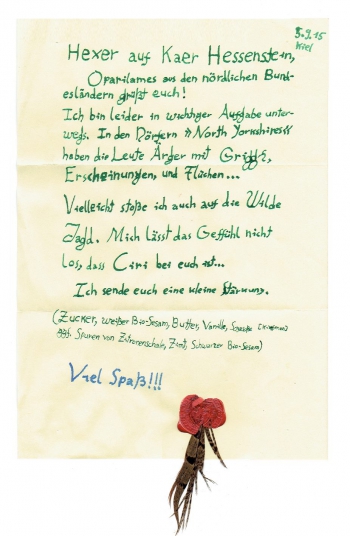 5.9.15
Kiel
Hexer auf Kaer Hessenstein,
Oparilames aus den nördlichen Bund-
esländern grüßt euch!
Ich bin leider in wichtiger Aufgabe unter-
wegs. In den Dörfern »North Yorkshires«
haben die Leute Ärger mit
Erscheinungen, und Flüchen...
Vielleicht stoße ich auch auf die Wilde
Jagd. Mich lässt das Gefühl nicht
los, dass Ciri bei euch ist...
Ich sende euch eine kleine Stärkung.
(Zucker, weißer Bio-Sesam, Butter, Vanille,
ggf. Spuren von Zitronenschale, Zimt, Schwarzer Bio-Sesam)
Viel Spaß!!!